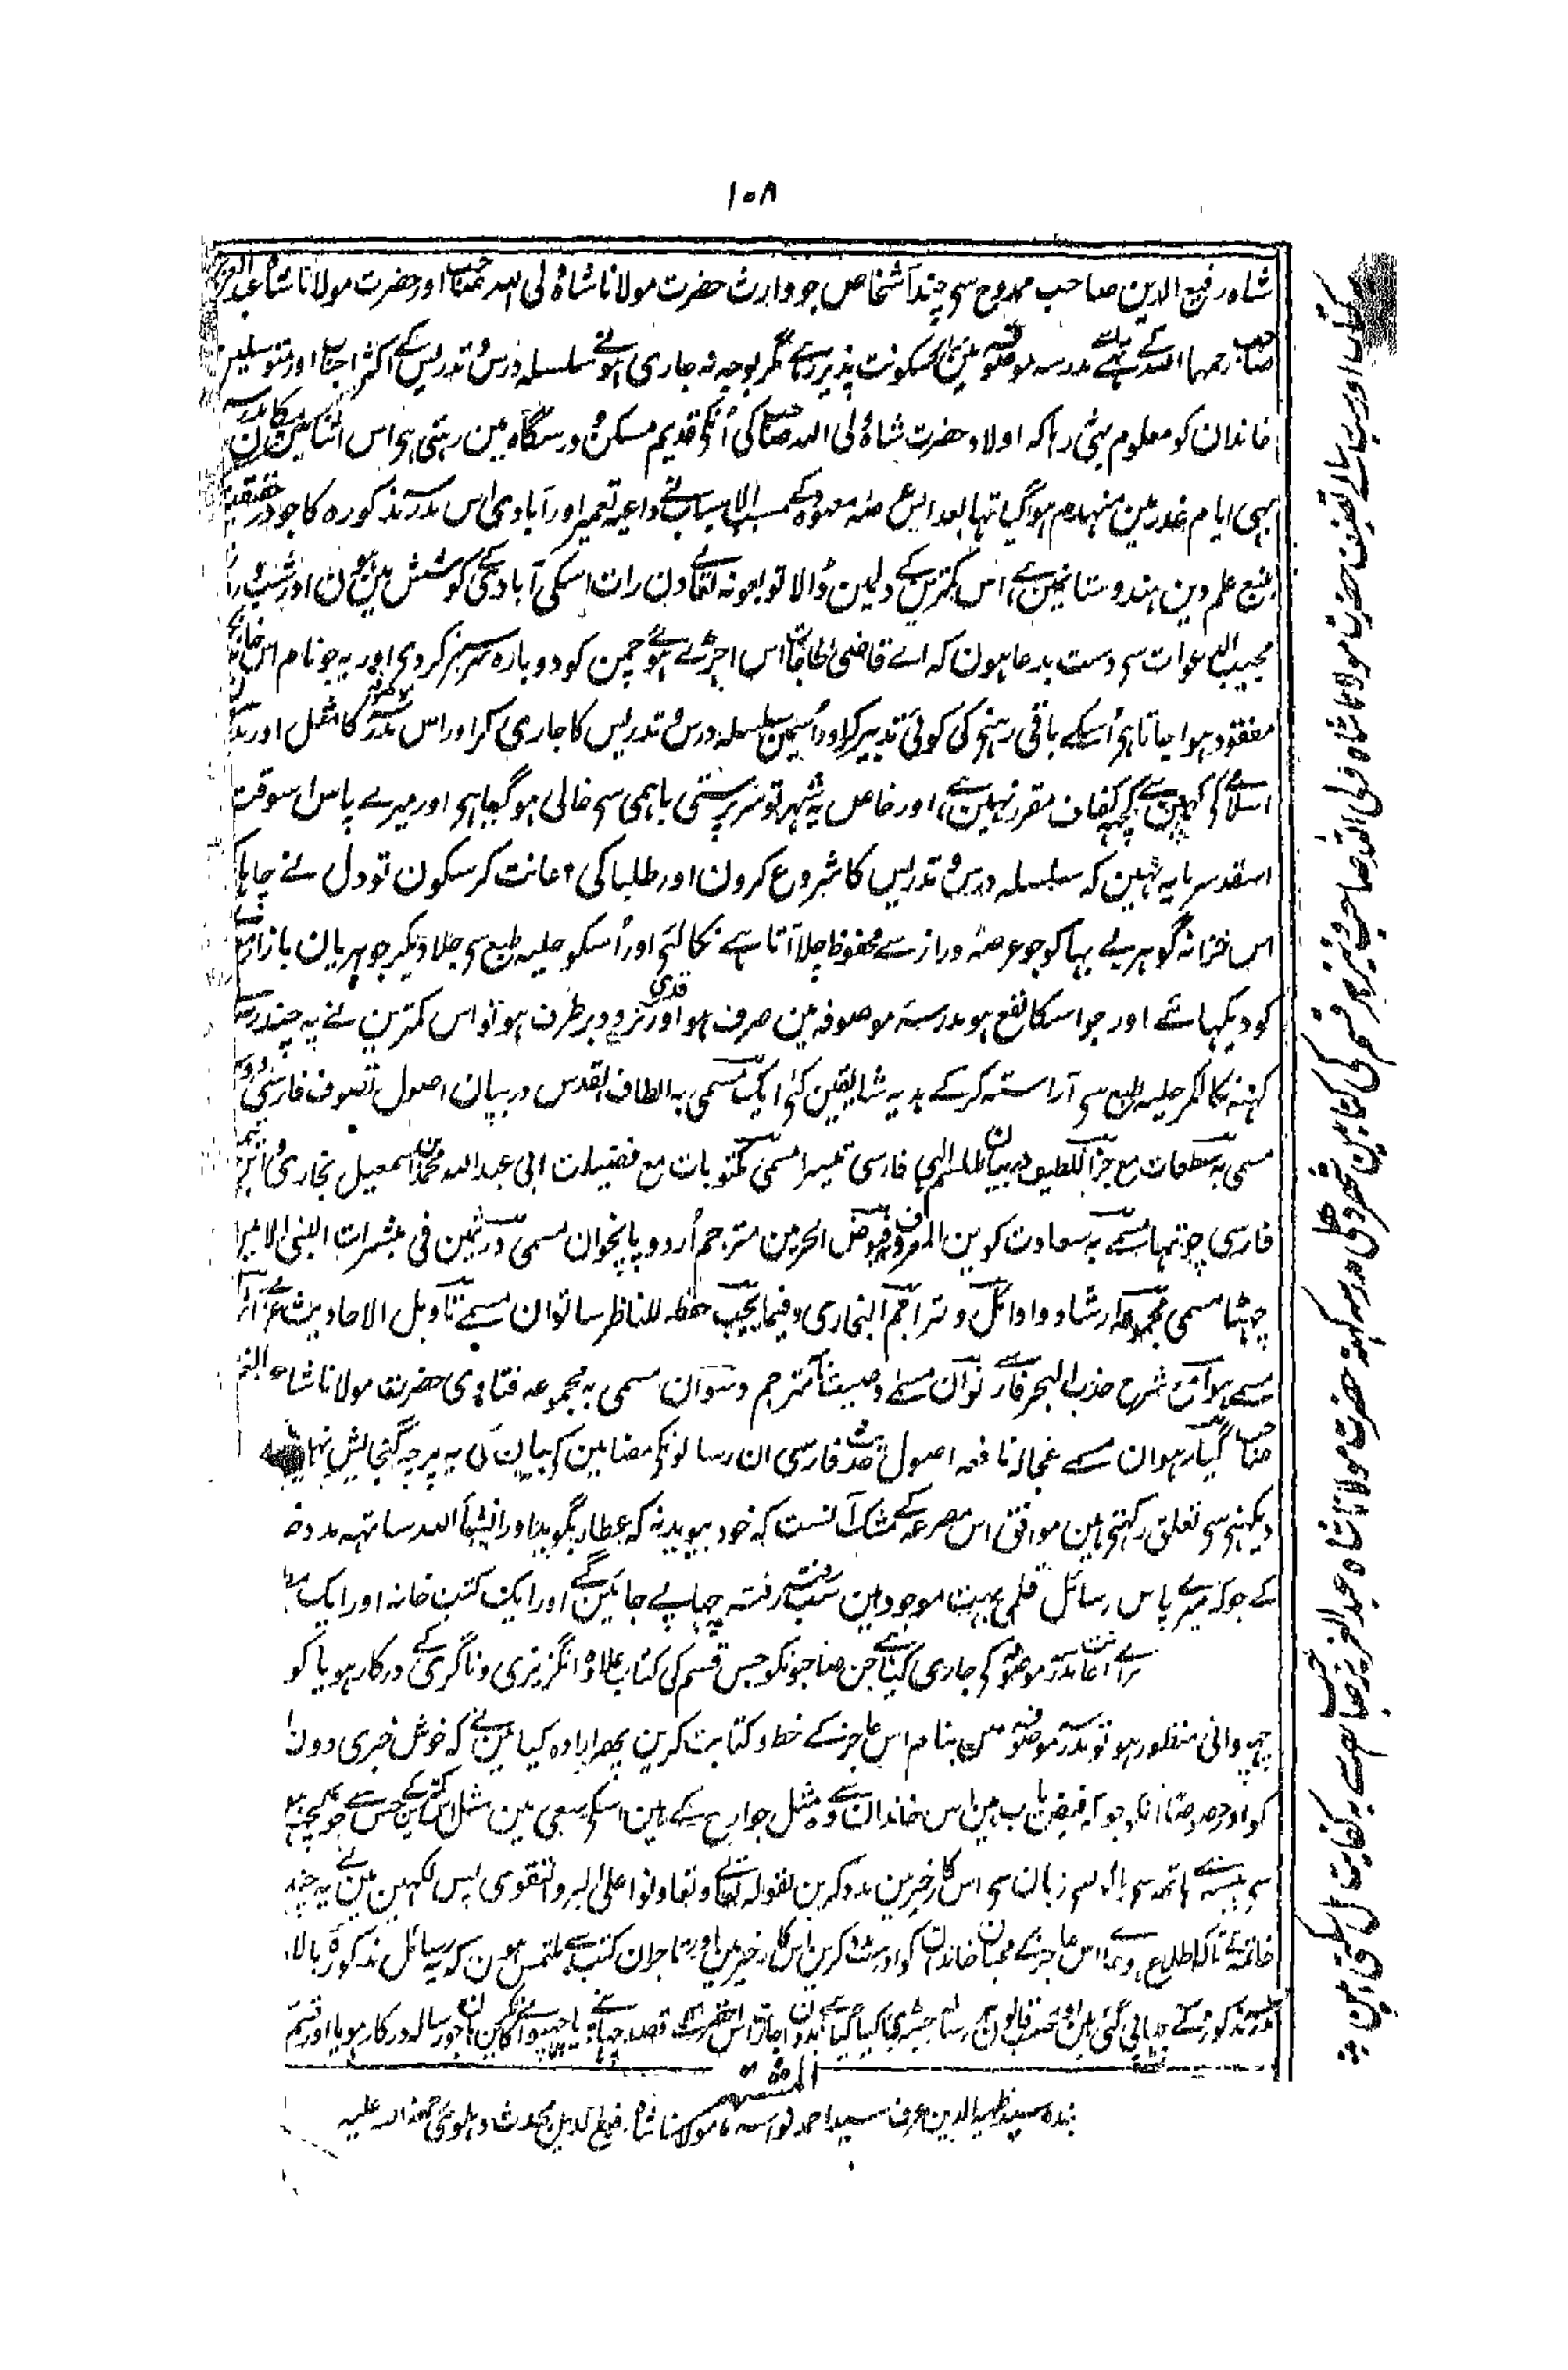 ۱۰۸
شاہ رفیع الدین صاحب ممدوح سی چند اشخاص جو وارث حضرت مولانا شاہ ولی اللہ صاحب اور حضرت مولانا شاہ عبدالعزیز
صاحب رحمہما اللہ کے تھے مدرسہ موصوفہ مین سکونت پذیر رہے مگر بوجہ نہ جاری ہونے سلسلہ درس و تدریس کے اکثر احباب اور متوسلین
خاندان کو معلوم نہیں رہا کہ اولاد حضرت شاہ ولی اللہ صاحب کی انکی قدیم مسکن و درسگاہ مین رہتی ہی اس اثنا مین مکان مدرسہ
بہی ایام غدر مین منہدم ہوگیا تہا بعد ایک عرصہ معہودہ کے مسبب الاسباب نے داعیہ تعمیر اور آبادی اس مدرسہ مذکورہ کا جو در حقیقت
منبع علم دین ہندوستا نمین ہے اس کمترین کے دلمین ڈالا تو بعونہ تعالے دن رات اسکی آبادی کی کوشش مین ہون اور شب و روز
مجیب الدعوات سی دست بدعا ہون کہ اے قاضی الحاجات اس اجڑے ہوئے چمن کو دوبارہ سرسبز کر دی اور یہ جو نام اس خاندان کا
مفقود ہوا جاتا ہی اُسکے باقی رہنی کی کوئی تدبیر کر اور اُسمین سلسلہ درس و تدریس کا جاری کرا اور اس مدرسہ موصوفہ کا مثل اور مدارس
اسلامی کے کہین سے کچھہ کفاف مقرر نہین ہے اور خاص یہ شہر تو سرپرستی باہمی سی خالی ہوگیا ہی اور میرے پاس اسوقت
اسقدر سرمایہ نہین کہ سلسلہ درس و تدریس کا شروع کرون اور طلبا کی اعانت کرسکون تو دل نے چاہا کہ
اس خزانہ گوہر بے بہا کو جو عرصہ دراز سے محفوظ چلا آتا ہے نکالئی اور اُسکو حلیہ طبع سی جلا دیکر جوہریان بازار
کو دیکہائے اور جو اسکا نفع ہو مدرسہ موصوفہ مین صرف ہو اور قدری تردد برطرف ہو تو اس کمترین نے یہ چند رسالے
کہنہ نکالکر حلیہ طبع سی آراستہ کرکے ہدیہ شایقین کئی ایک مسمی بہ الطاف القدس در بیان اصول تصوف فارسی دوم
مسمی بہ سطعات مع جزء اللطیف در بیان طلسم الٰہی فارسی تیسرا مسمی مکتوبات مع فضیلت ابی عبد اللہ محمد بن اسمعیل بخاری و ابن تیمیہ
فارسی چوتہا مسمے بہ سعادت کونین المعروف فیوض الحرمین مترجم اُردو پانچوان مسمی در ثمین فی مبشرات النبی الامین
چہٹا مسمی مجموعہ ارشاد و اوائل و تراجم البخاری و فیما یجب حفظہ للناظر ساتوان مسمے تاویل الاحادیث عربی آٹھوان
مسمے ہوامع شرح حزب البحر فارسی نوان مسمے وصیتنامہ مترجم دسوان مسمی بہ مجموعہ فتاوی حضرت مولانا شاہ عبدالعزیز
صاحب گیارہوان مسمے عجالہ نافعہ اصول حدیث فارسی ان رسالونکی مضامین کے بیان کی یہ پرچہ گنجایش نہین
دیکہنی سی تعلق رکہتی ہین موافق اس مصرعہ کے مشک آنست کہ خود ببوید نہ کہ عطار بگوید اور انشاء اللہ ساتہہ مدد خدا
کے جو کہ میرے پاس رسائل قلمی بہت موجود ہین رفتہ رفتہ چہاپے جائینگے اور ایک کتب خانہ اور ایک
برائے اعانت مدرسہ موصوفہ کی جاری کیا ہے جن صاحبونکو جس قسم کی کتاب علاوہ انگریزی و ناگری کے درکار ہو یا کو
چہپوانی منظور ہو تو مدرسہ موصوفہ مین بنام اس عاجز کے خط و کتابت کرین پھر ارادہ کیا مین نے کہ خوش خبری دون
کو اوپر انکے جو کہ فیض یاب ہین اس خاندان سے وہ مثل جوارح کے ہین اسکی سعی مین مثل اس کمترین کے جس سے جو
سی پیسے ہاتھہ سی زبان سی اس کار خیر مین مدد کرین بقولہ تعالے وتعاونوا علی البر والتقوی پس لکہین مین نے یہ چند
خاتمہ تاکہ اطلاع ہو اس عاجز کے محبان خاندان کو اور مدد کرین اس کار خیر مین اور تاجران کتب سے ملتمس ہون کہ یہ رسائل مذکورہ بالا
مدرسہ مذکور سے چہاپی گئی ہین اور بموجب قانون رجسٹری کیا گیا ہے بدون اجازت اس احقر کے قصد چہاپنے یا چہپوانے کا نکرین جو رسالہ درکار ہو یا اور قسم
المشتہر
بندہ سید ظہیر الدین عرف سید احمد نواسہ مولانا شاہ رفیع الدین محدث دہلوی رحمۃ اللہ علیہ
کتابین اور رسائل تصنیف حضرت مولانا شاہ ولی اللہ صاحب و نیز ہر قسم کی کتابین شہر دہلی مدرسہ کہنہ حضرت مولانا شاہ عبد العزیز صاحب سے بکفایت مل سکتی ہین